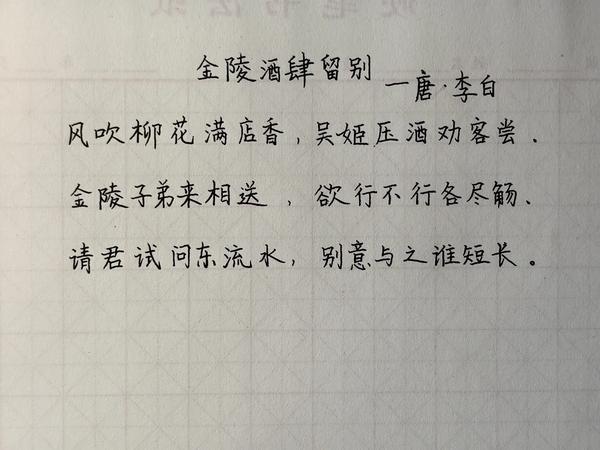 金陵酒肆留别
—唐·李白
风吹柳花满店香,吴姬压酒劝客尝.
金陵子弟来相送,欲行不行各尽觞、
请君试问东流水,别意与之谁短长。